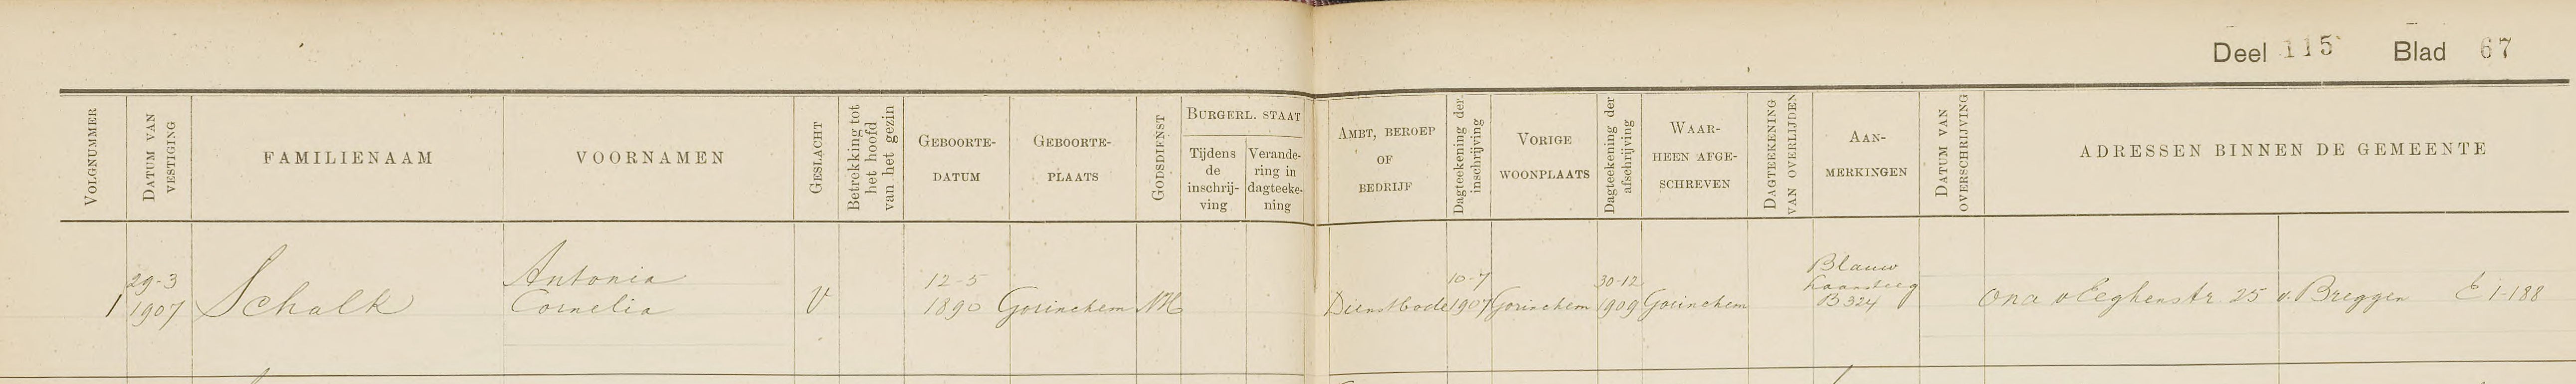 Deel 115 Blad 67
VOLGNUMMER
DATUM VAN
VESTIGING
FAMILIENAAM
VOORNAMEN
GESLACHT
Betrekking tot
het hoofd
van het gezin
GEBOORTE-
DATUM
GEBOORTE-
PLAATS
GODSDIENST
BURGERL. STAAT
Tijdens
de
inschrij-
ving
Verande-
ring in
dagteeke-
ning
AMBT, BEROEP
OF
BEDRIJF
Dagteekening der
inschrijving
VORIGE
WOONPLAATS
Dagteekening der
afschrijving
WAAR-
HEEN AFGE-
SCHREVEN
DAGTEEKENING
VAN OVERLIJDEN
AAN-
MERKINGEN
DATUM VAN
OVERSCHRIJVING
ADRESSEN BINNEN DE GEMEENTE
1
29-3
1907
Schalk
Antonia
Cornelia
V
12-5
1890
Gorinchem
NH
Dienstbode
10-7
1907
Gorinchem
30-12
1909
Gorinchem
Blauw
Laansteeg
B 324
v Eeghenstr. 25
v. Breggen E 1-188